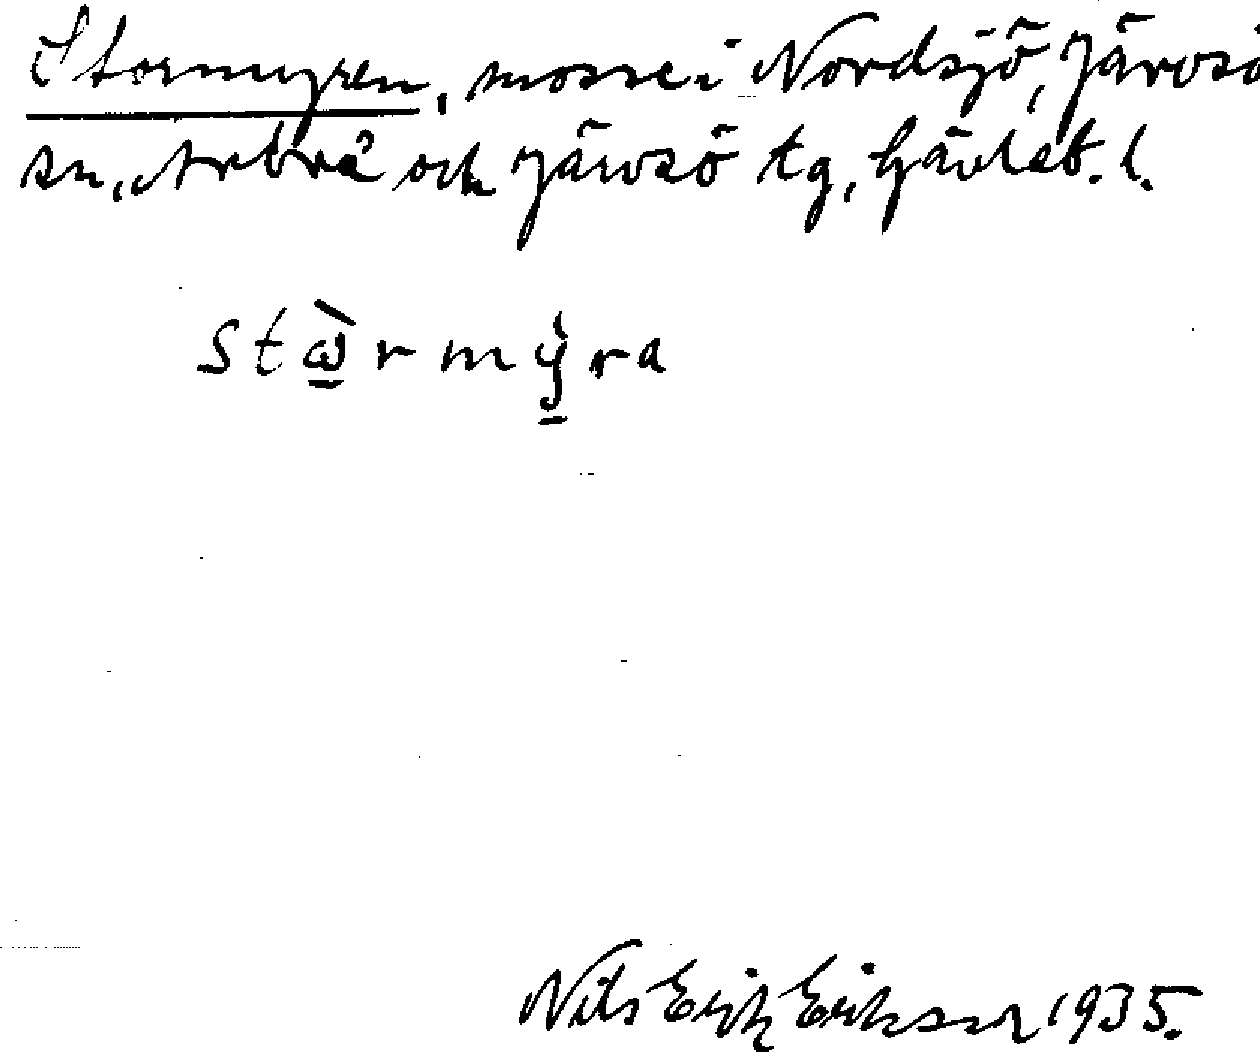 Stormyren, mosse i Nordsjö, Järvsö
sn, Arbrå och Järvsö tg, Gävleb. l.
stὼ̲rmỳ̲ra
Nils Erik Eriksson 1935.